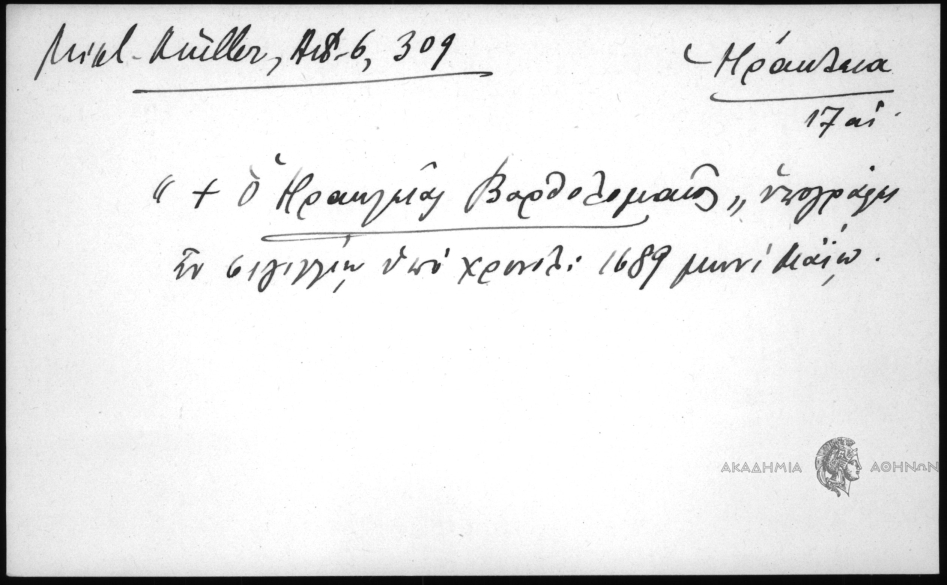 Mikl-Müller, Act-6, 309
Ηράκλεια
17 αἰ.
" + Ὁ Ηρακλείας Βαρθολομαῖος „ ὑπογράφει
ἐν σιγιλλίῳ ὑπό χρονολ: 1689 μηνί Μαΐῳ.
ΑΚΑΔΗΜΙΑ ΑΘΗΝΩΝ